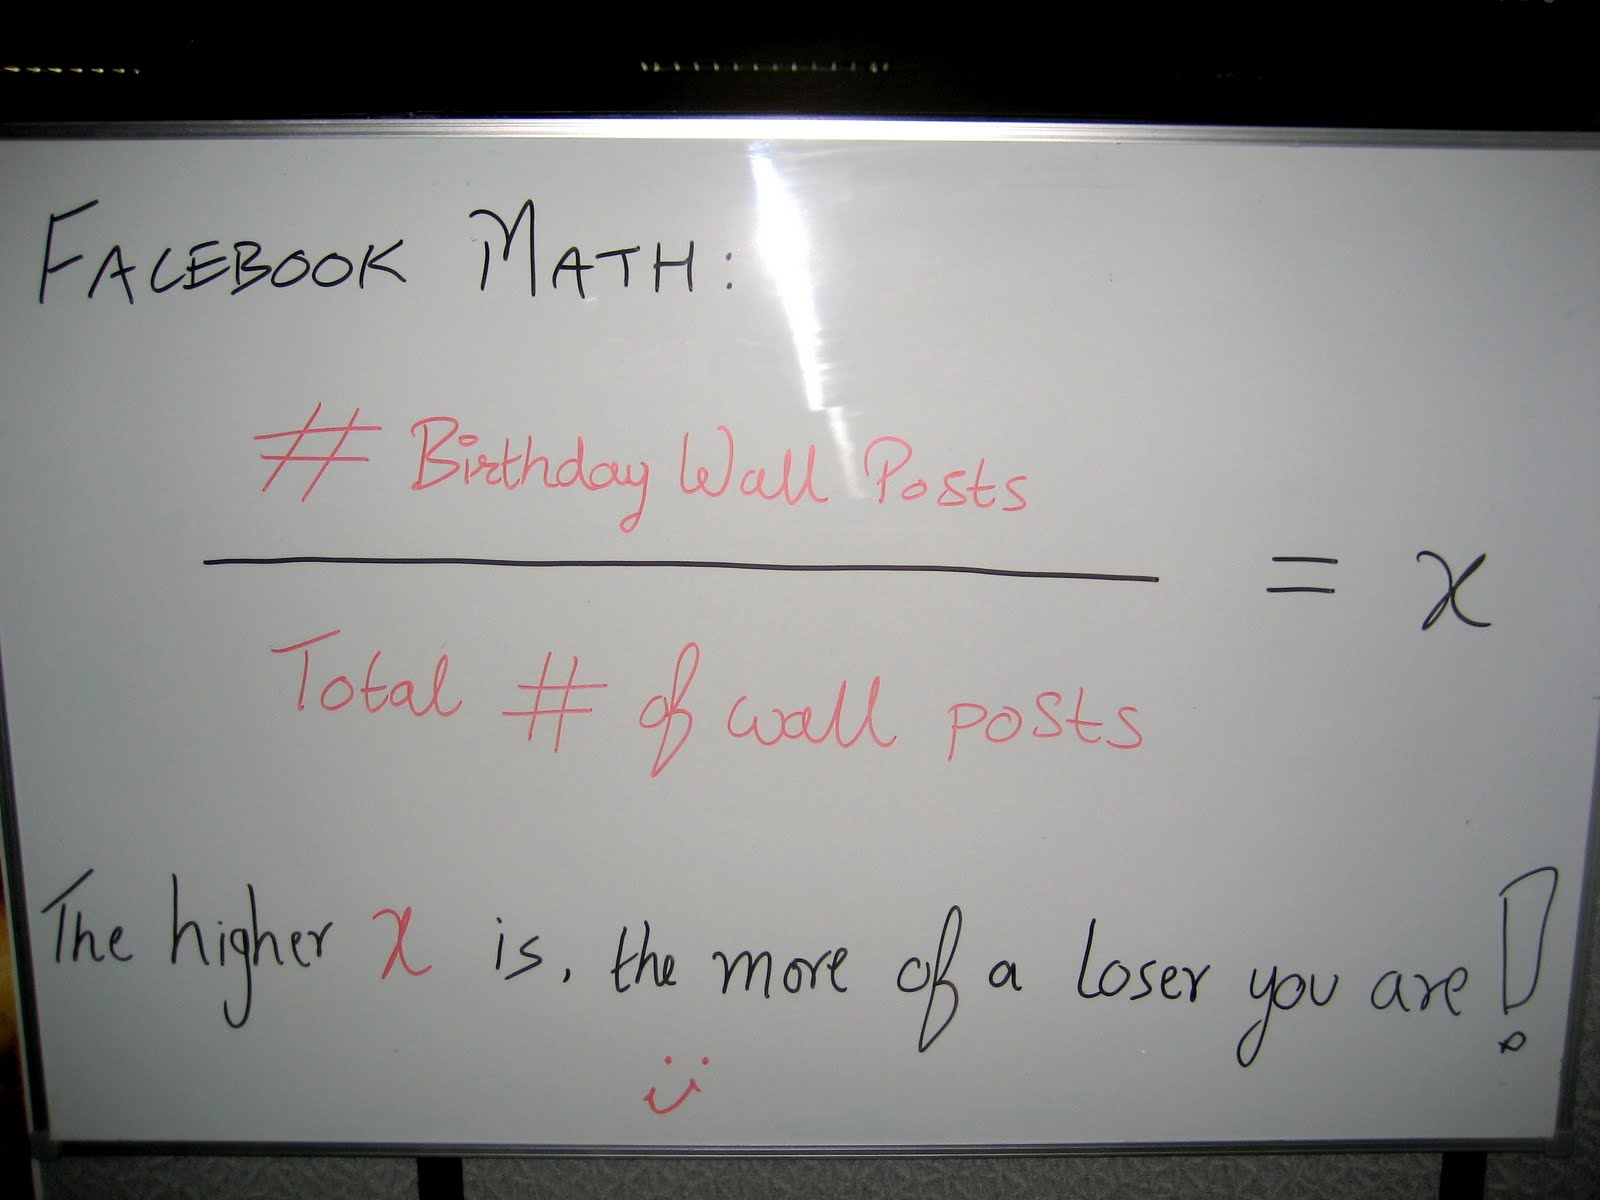 FACEBOOK MATH:
# Birthday Wall Posts
= x
Total # of wall posts
The higher x is, the more of a loser you are!